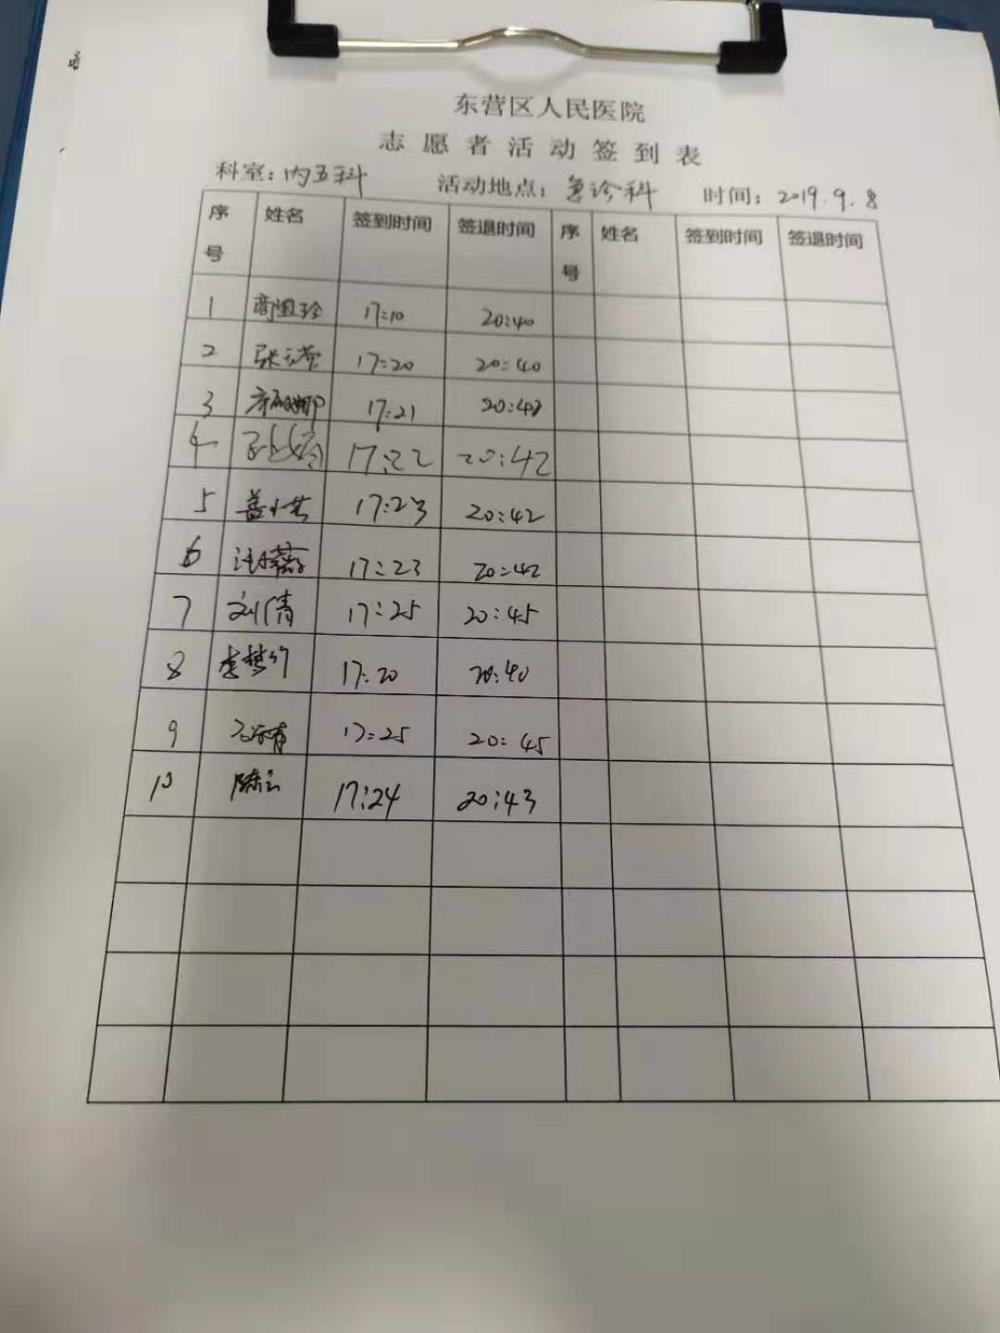 东营区人民医院
志愿者活动签到表
科室：内五科 活动地点：急诊科 时间：2019.9.8
序号 姓名 签到时间 签退时间 序号 姓名 签到时间 签退时间
1 17:10 20:40
2 17:20 20:40
3 17:21 20:42
4 17:22 20:42
5 17:23 20:42
6 17:23 20:42
7 刘倩 17:25 20:45
8 李梦 17:20 20:40
9 17:25 20:45
10 陈云 17:24 20:43